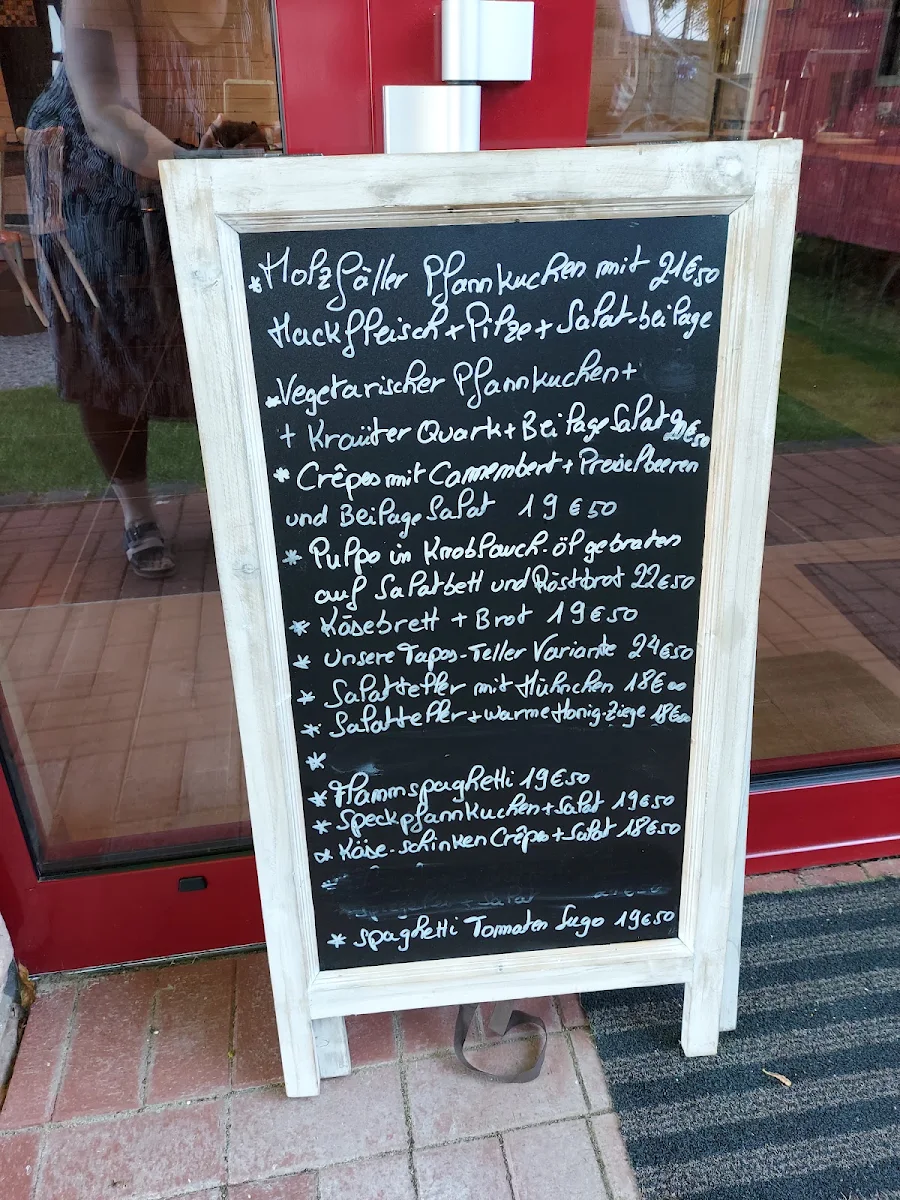 * Holzfäller Pfannkuchen mit 21€50
Hackfleisch + Pilze + Salat-beilage
* Vegetarischer Pfannkuchen +
+ Kraüter Quark + Beilage Salat 20€50
* Crêpes mit Camembert + Preiselbeeren
und Beilage Salat 19€50
* Pulpo in Knoblauch-öl gebraten
auf Salatbett und Röstbrot 22€50
* Käsebrett + Brot 19€50
* Unsere Tapas-Teller Variante 24€50
* Salatteller mit Hühnchen 18€00
* Salatteller + warme Honig-Ziege 18€00
*
* Flammspaghetti 19€50
* Speckpfannkuchen + Salat 19€50
* Käse-Schinken Crêpes + Salat 18€50
* Spaghetti Tomaten Sugo 19€50